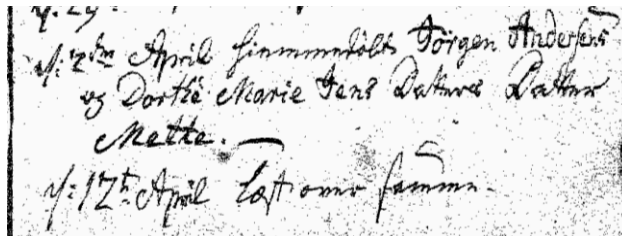 d: 2den April hiemmedøbt Jörgen Andersens
og Dorthe Marie Jens Datters Datter
Mette.
d: 12te April Læst over samme.